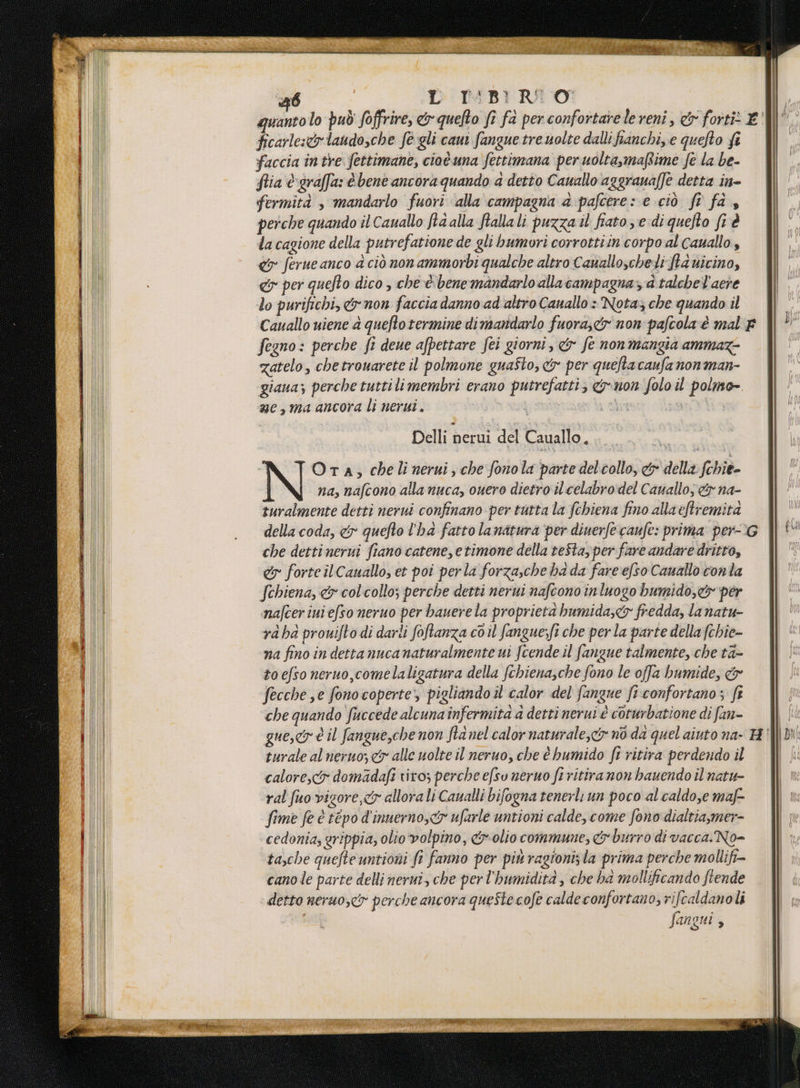 46 LIBRO
quanto lo può ſoffrire, & queſto ſi fà per confortare le reni, & forti- E
ficarle: & laudo, che ſe gli caui ſangue tre uolte dalli fianchi, e queſto ſi
faccia in tre ſettimane, cioè una ſettimana per uolta, maſſime ſe la be-
ſtia è graſſa: è bene ancora quando à detto Cauallo aggrauaſſe detta in-
fermità, mandarlo fuori alla campagna à paſcere: e ciò ſi fà,
perche quando il Cauallo ſtà alla ſtalla li puzza il fiato, e di queſto ſi è
la cagione della putrefatione de gli humori corrotti in corpo al Cauallo,
& ſerue anco à ciò non ammorbi qualche altro Cauallo, che li ſtà uicino,
& per queſto dico, che è bene mandarlo alla campagna, à talche l'aere
lo purifichi, & non faccia danno ad altro Cauallo: Nota, che quando il
Cauallo uiene à queſto termine di mandarlo fuora, & non paſcola è mal F
ſegno: perche ſi deue aſpettare ſei giorni, & ſe non mangia ammaz-
zatelo, che trouarete il polmone guaſto, & per queſta cauſa non man-
giaua; perche tutti li membri erano putrefatti, & non ſolo il polmo-
ne, ma ancora li nerui.
Delli nerui del Cauallo.
NOTA, che li nerui, che ſono la parte del collo, & della ſchie-
na, naſcono alla nuca, ouero dietro il celabro del Cauallo, & na-
turalmente detti nerui confinano per tutta la ſchiena fino alla eſtremità
della coda, & queſto l'hà fatto la natura per diuerſe cauſe: prima per- G
che detti nerui ſiano catene, e timone della teſta, per fare andare dritto,
& forte il Cauallo, et poi per la forza, che hà da fare eſso Cauallo con la
ſchiena, & col collo; perche detti nerui naſcono in luogo humido, & per
naſcer iui eſso neruo per hauere la proprietà humida, & fredda, la natu-
ra hà prouiſto di darli ſoſtanza cō il ſangue, ſi che per la parte della ſchie-
na fino in detta nuca naturalmente ui ſcende il ſangue talmente, che tā-
to eſso neruo, come la ligatura della ſchiena, che ſono le oſſa humide, &
ſecche, e ſono coperte, pigliando il calor del ſangue ſi confortano; ſi
che quando ſuccede alcuna infermità à detti nerui è cōturbatione di ſan-
gue, & è il ſangue, che non ſtà nel calor naturale, & nō dà quel aiuto na- H
turale al neruo; & alle uolte il neruo, che è humido ſi ritira perdendo il
calore, & domādaſi tiro; perche eſso neruo ſi ritira non hauendo il natu-
ral ſuo vigore, & allora li Caualli biſogna tenerli un poco al caldo, e maſ-
ſime ſe è tēpo d'inuerno, & uſarle untioni calde, come ſono dialtia, mer-
cedonia, grippia, olio volpino, & olio commune, & burro di vacca. No-
ta, che queſte untioni ſi fanno per più ragioni; la prima perche mollifi-
cano le parte delli nerui, che per l'humidità, che hà mollificando ſtende
detto neruo, & perche ancora queſte coſe calde confortano, riſcaldano li
ſangui,